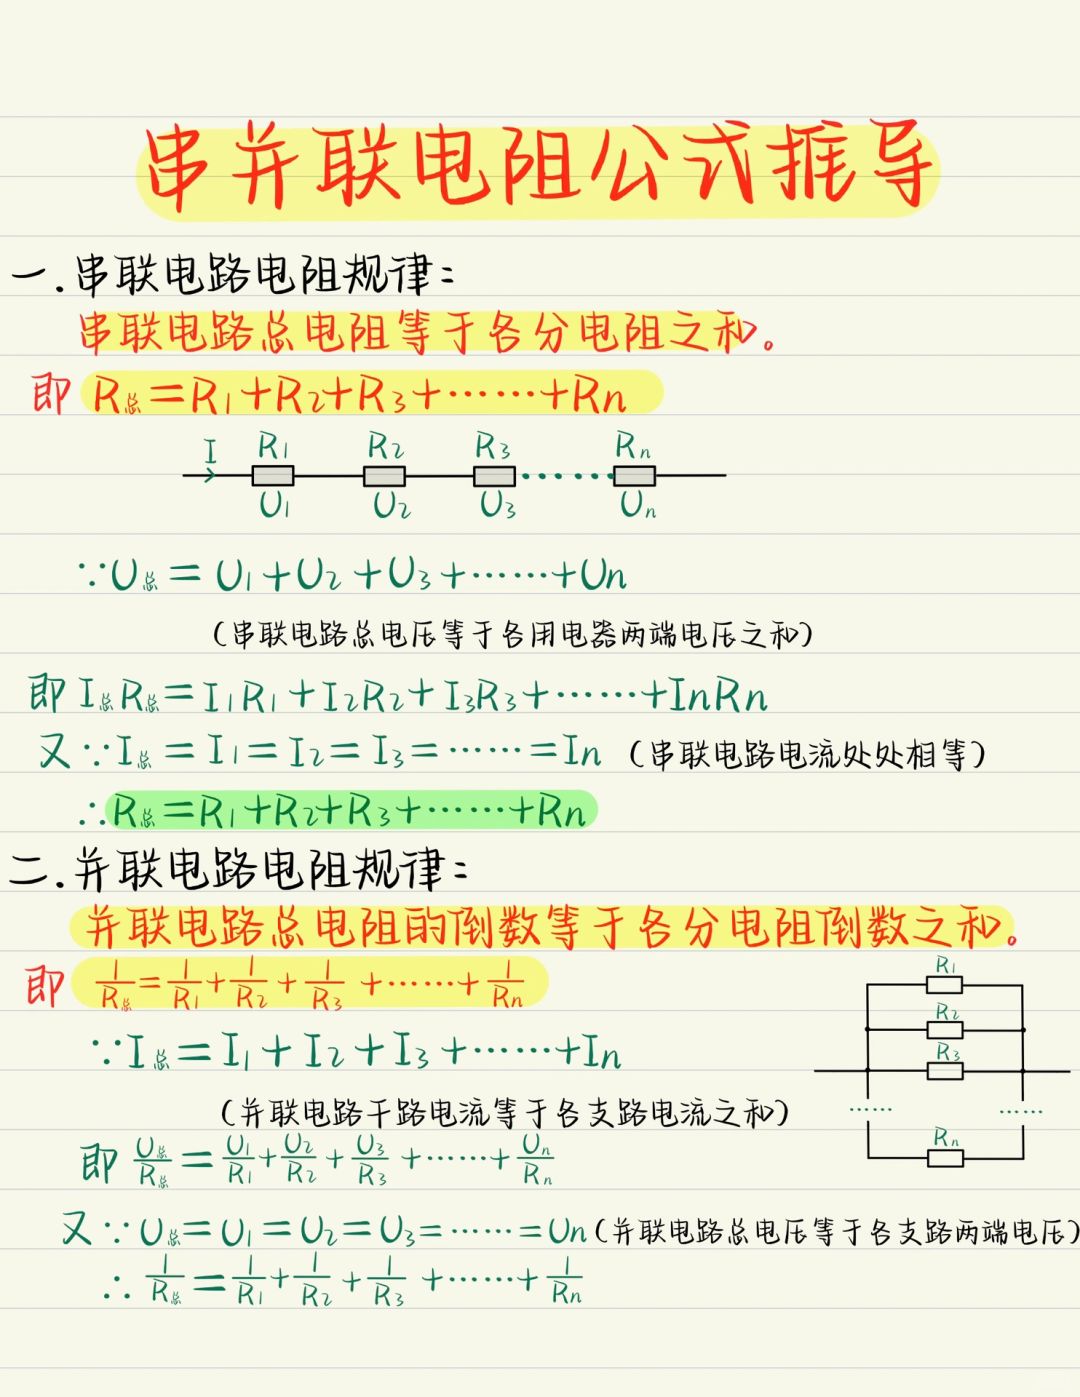 串并联电阻公式推导
一.串联电路电阻规律:
串联电路总电阻等于各分电阻之和。
即 R总=R1+R2+R3+……+Rn
I R1 R2 R3 Rn
U1 U2 U3 ...... Un
∵U总=U1+U2+U3+……+Un
(串联电路总电压等于各用电器两端电压之和)
即I总R总=I1R1+I2R2+I3R3+……+InRn
又∵I总=I1=I2=I3=……=In (串联电路电流处处相等)
∴R总=R1+R2+R3+……+Rn
二.并联电路电阻规律:
并联电路总电阻的倒数等于各分电阻倒数之和。
即 1/R总=1/R1+1/R2+1/R3+……+1/Rn
R1
R2
R3
…… ……
Rn
∵I总=I1+I2+I3+……+In
(并联电路干路电流等于各支路电流之和)
即 U总/R总=U1/R1+U2/R2+U3/R3+……+Un/Rn
又∵U总=U1=U2=U3=……=Un(并联电路总电压等于各支路两端电压)
∴ 1/R总=1/R1+1/R2+1/R3+……+1/Rn